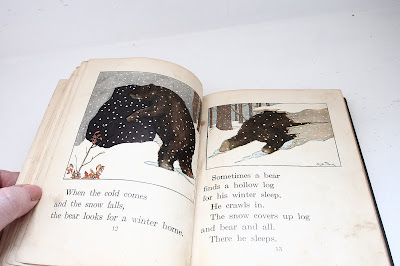 When the cold comes
and the snow falls,
the bear looks for a winter home.
12
Sometimes a bear
finds a hollow log
for his winter sleep.
He crawls in.
The snow covers up log
and bear and all.
There he sleeps.
13